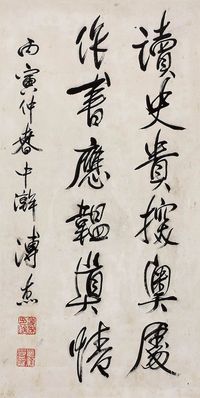 讀史貴探奧處
作書應韞真情
丙寅仲春中澣溥杰